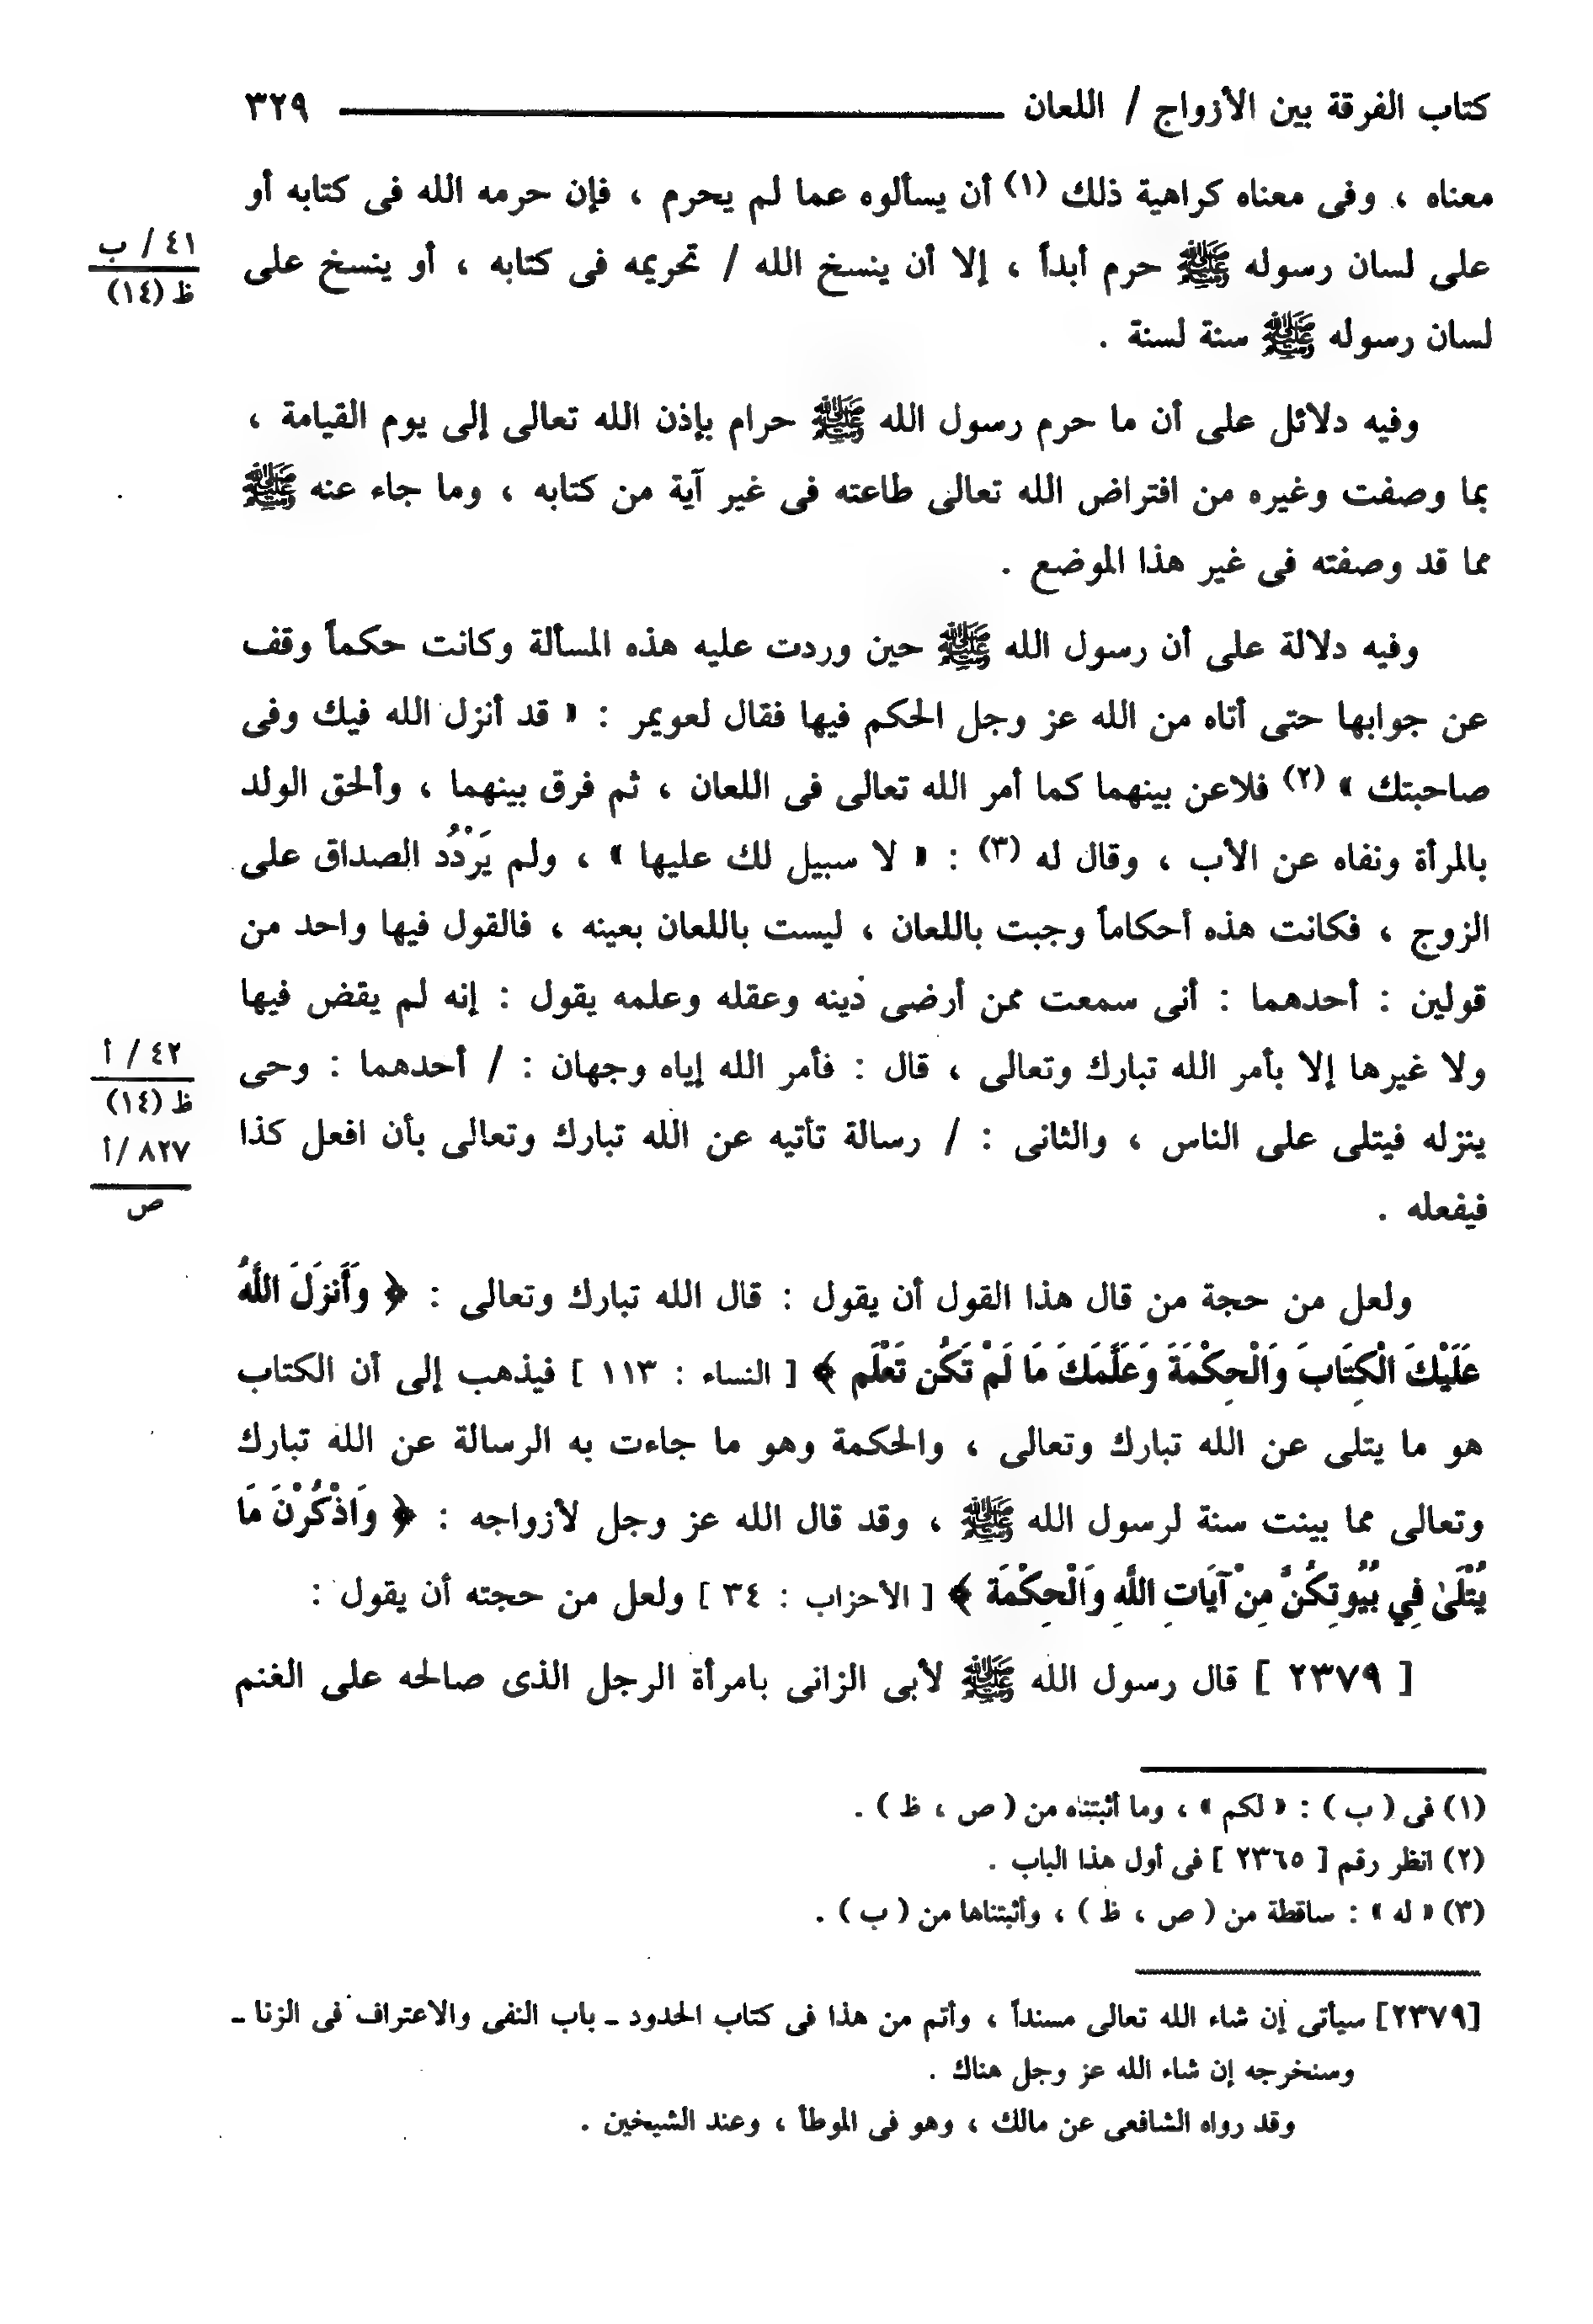 كتاب الفرقة بين الأزواج / اللعان ٣٢٩
معناه ، وفى معناه كراهية ذلك (١) أن يسألوه عما لم يحرم ، فإن حرمه الله فى كتابه أو
على لسان رسوله ﷺ حرم أبداً ، إلا أن ينسخ الله / تحريمه فى كتابه ، أو ينسخ على
٤١ / ب
ظ (١٤)
لسان رسوله ﷺ سنة لسنة .
وفيه دلائل على أن ما حرم رسول الله ﷺ حرام بإذن الله تعالى إلى يوم القيامة ،
بما وصفت وغيره من افتراض الله تعالى طاعته فى غير آية من كتابه ، وما جاء عنه ﷺ
مما قد وصفته فى غير هذا الموضع .
وفيه دلالة على أن رسول الله ﷺ حين وردت عليه هذه المسألة وكانت حكماً وقف
عن جوابها حتى أتاه من الله عز وجل الحكم فيها فقال لعويمر : « قد أنزل الله فيك وفى
صاحبتك » (٢) فلاعن بينهما كما أمر الله تعالى فى اللعان ، ثم فرق بينهما ، وألحق الولد
بالمرأة ونفاه عن الأب ، وقال له (٣) : « لا سبيل لك عليها » ، ولم يَرْدُد الصداق على
الزوج ، فكانت هذه أحكاماً وجبت باللعان ، ليست باللعان بعينه ، فالقول فيها واحد من
قولين : أحدهما : أنى سمعت ممن أرضى دينه وعقله وعلمه يقول : إنه لم يقض فيها
ولا غيرها إلا بأمر الله تبارك وتعالى ، قال : فأمر الله إياه وجهان : / أحدهما : وحى
٤٢ / أ
ظ (١٤)
ينزله فيتلى على الناس ، والثانى : / رسالة تأتيه عن الله تبارك وتعالى بأن افعل كذا
٨٢٧ /أ
ص
فيفعله .
ولعل من حجة من قال هذا القول أن يقول : قال الله تبارك وتعالى : ﴿ وَأَنزَلَ اللَّهُ
عَلَيْكَ الْكِتَابَ وَالْحِكْمَةَ وَعَلَّمَكَ مَا لَمْ تَكُن تَعْلَم ﴾ [ النساء : ١١٣ ] فيذهب إلى أن الكتاب
هو ما يتلى عن الله تبارك وتعالى ، والحكمة وهو ما جاءت به الرسالة عن الله تبارك
وتعالى مما بينت سنة لرسول الله ﷺ ، وقد قال الله عز وجل لأزواجه : ﴿ وَاذْكُرْنَ مَا
يُتْلَىٰ فِي بُيُوتِكُنَّ مِنْ آيَاتِ اللَّهِ وَالْحِكْمَة ﴾ [ الأحزاب : ٣٤ ] ولعل من حجته أن يقول :
[ ٢٣٧٩ ] قال رسول الله ﷺ لأبى الزانى بامرأة الرجل الذى صالحه على الغنم
(١) فى ( ب ) : « لكم » ، وما أثبتناه من ( ص ، ظ ) .
(٢) انظر رقم [ ٢٣٦٥ ] فى أول هذا الباب .
(٣) « له » : ساقطة من ( ص ، ظ ) ، وأثبتناها من ( ب ) .
[٢٣٧٩] سيأتى إن شاء الله تعالى مسنداً ، وأتم من هذا فى كتاب الحدود ـ باب النفى والاعتراف فى الزنا ـ
وسنخرجه إن شاء الله عز وجل هناك .
وقد رواه الشافعى عن مالك ، وهو فى الموطأ ، وعند الشيخين .